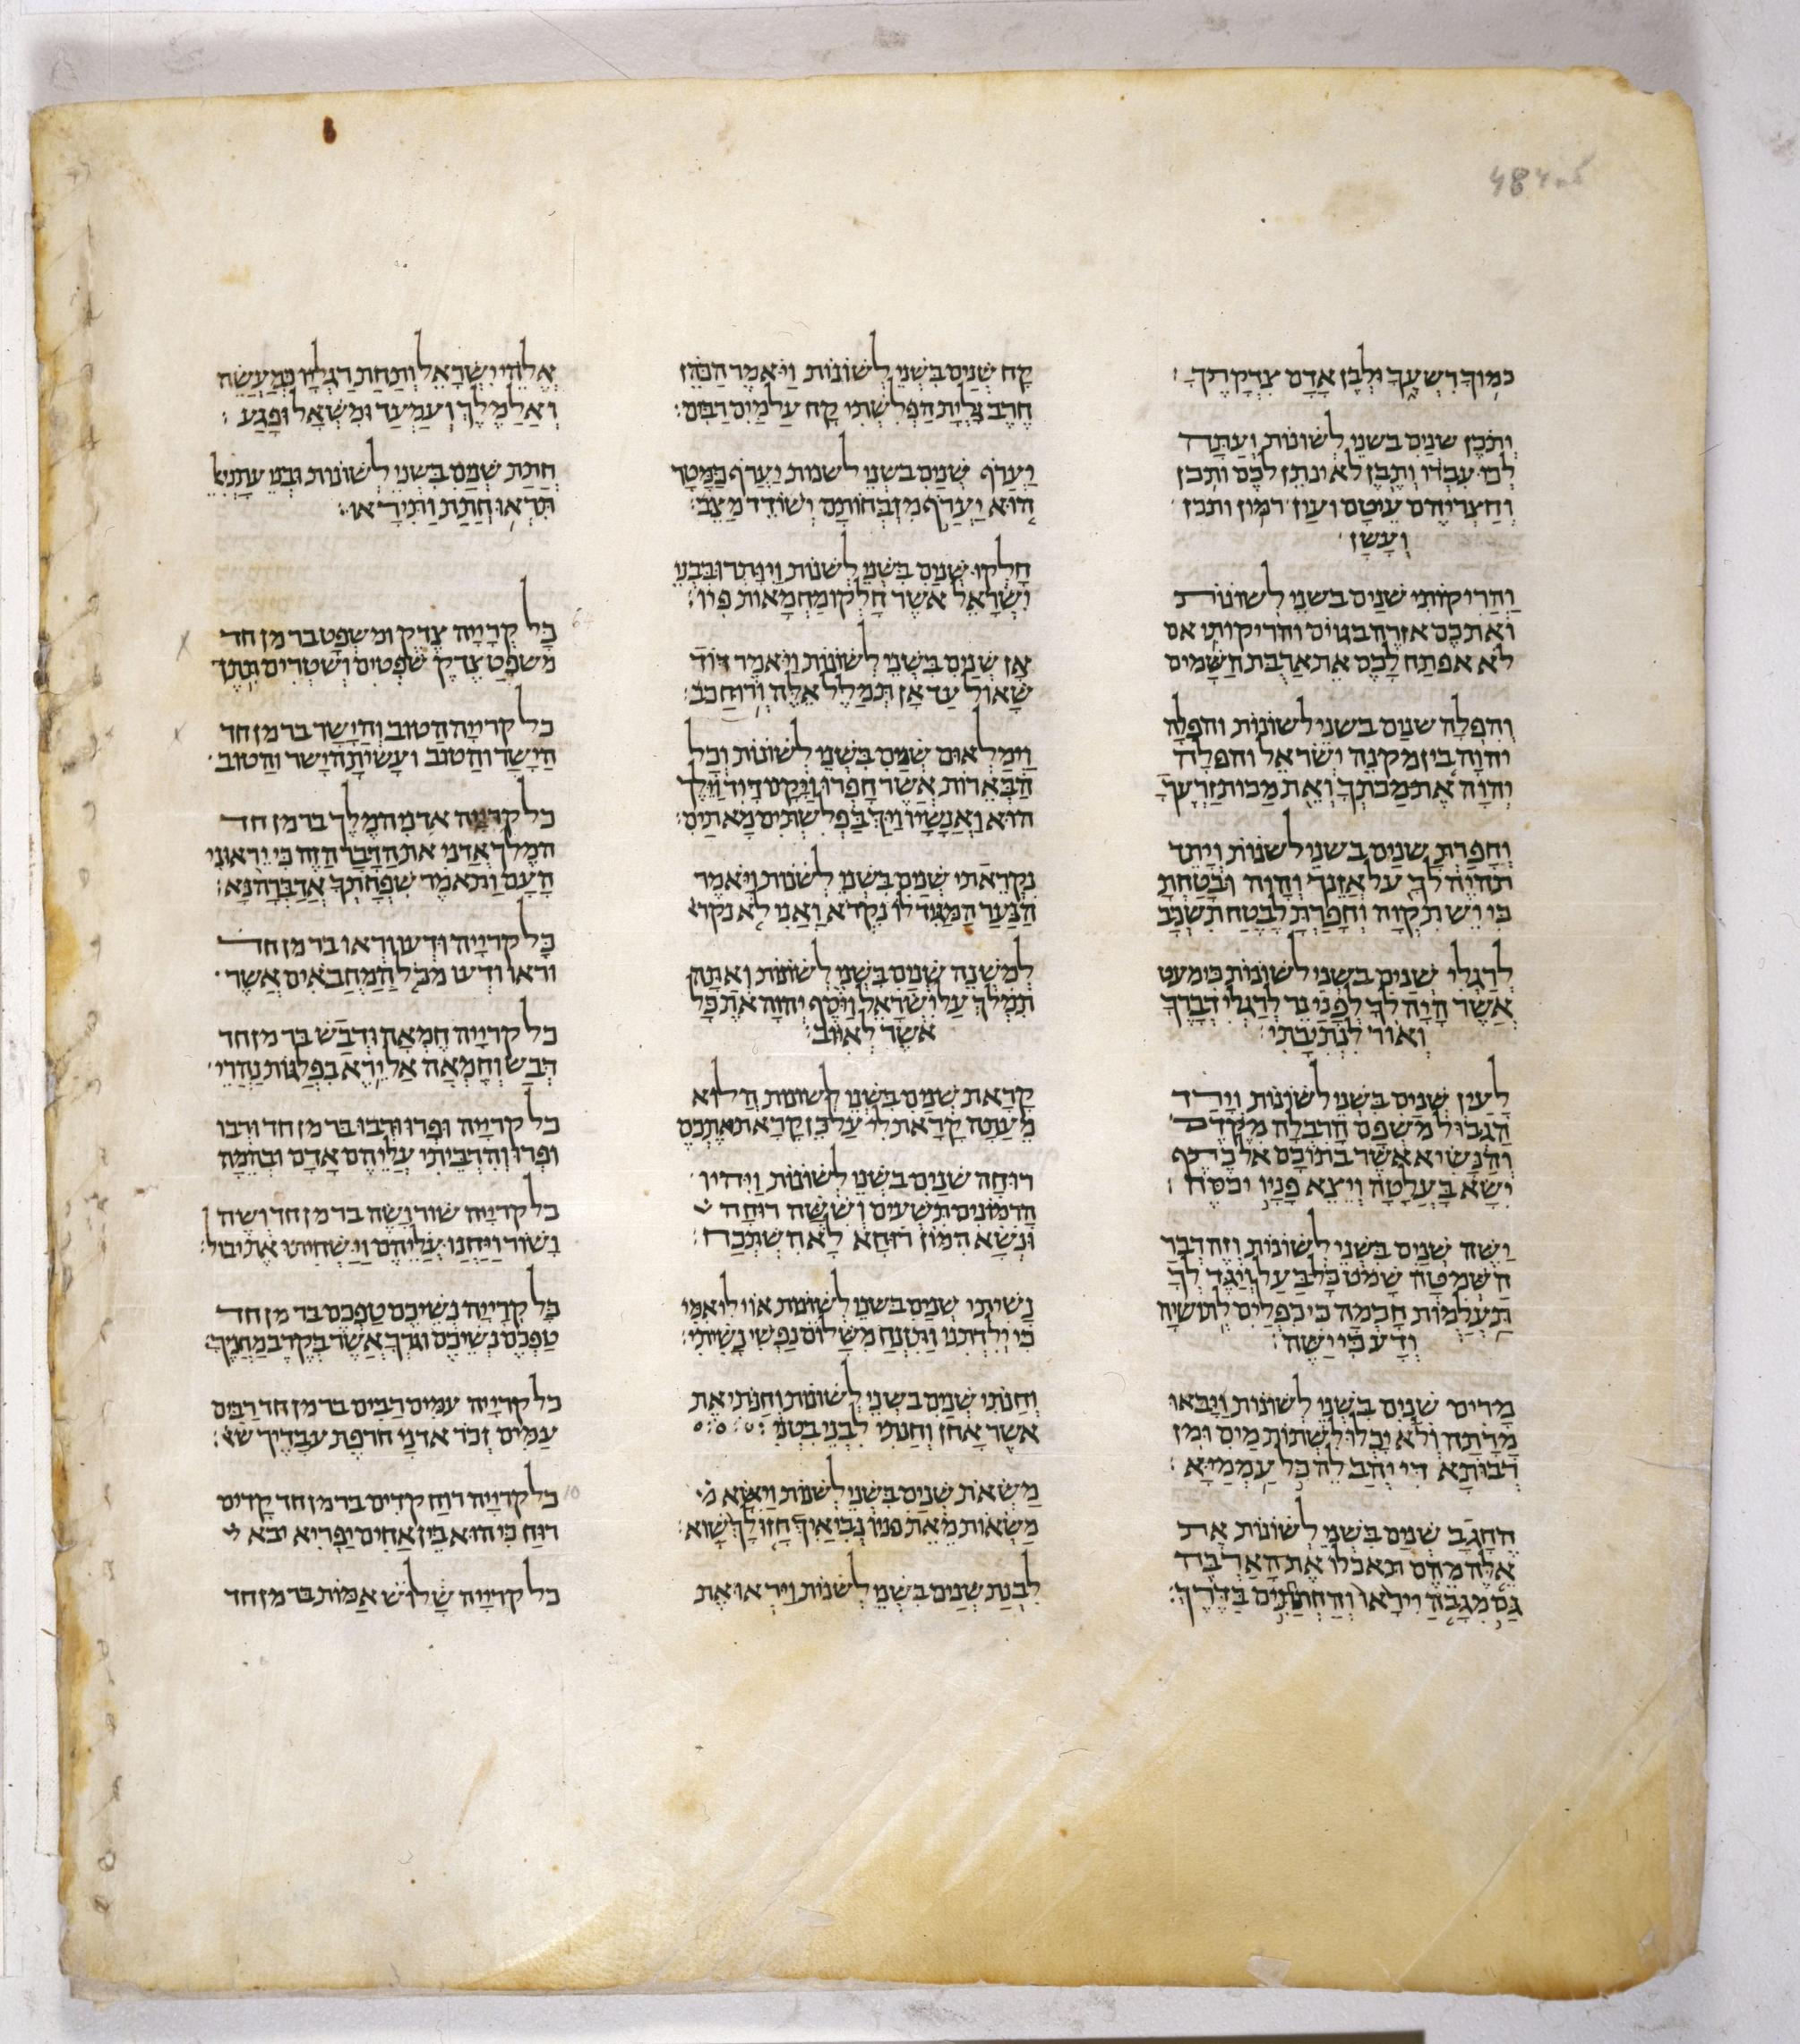 כמוך רשעך ולבן אדם צדקתך׃
ותכן שנים בשני לשונות ועתה
לכו עבדו ותבן לא ינתן לכם ותכן
וחצריהם עיטם ועין רמון ותכן
ועשן
והריקותי שנים בשני לשונות
ואתכם אזרה בגוים והריקותי אם
לא אפתח לכם את ארבת השמים
והפלה שנים בשני לשונות והפלה
יהוה בין מקנה ישראל והפלה
יהוה את מכתך ואת מכות זרעך
וחפרת שנים בשני לשנות ויתד
תהיה לך על אזנך והיה ובטחת
כי יש תקוה וחפרת לבטח תשכב
לרגלי שנים בשני לשונות כי מעט
אשר היה לך לפני נר לרגלי דברך
ואור לנתיבתי׃
לעין שנים בשני לשונות וירד
הגבול משפם הרבלה מקדם
והנשיא אשר בתוכם אל כתף
ישא בעלטה ויצא פניו יכסה׃
ישה שנים בשני לשונות וזה דבר
השמטה שמט כל בעל ויגד לך
תעלמות חכמה כי כפלים לתושיה
ודע כי ישה׃
מרים שנים בשני לשונות ויבאו
מרתה ולא יכלו לשתות מים ומן
רבותא די יהב לה כל עממיא׃
החגב שנים בשני לשונות את
אלה מהם תאכלו את הארבה
גם מגבה ייראו וחתחתים בדרך׃
קח שנים בשני לשונות ויאמר הכהן
חרב גלית הפלשתי קח על מים רבים׃
יערף שנים בשני לשנות יערף כמטר
הוא יערף מזבחותם ישודד מצב׃
חלקו שנים בשני לשנות ויותרו בבני
ישראל אשר חלקו מחמאות פיו׃
אן שנים בשני לשונות ויאמר דוד
שאול עד אן תמלל אלה ורוח כב׃
וימלאום שנים בשני לשונות וכל
הבארות אשר חפרו ויקם דויד וילך
הוא ואנשיו ויך בפלשתים מאתים׃
נקראתי שנים בשני לשנות ויאמר
הנער המגיד לו נקרא ואני לא נקרא
למשנה שנים בשני לשונות ואתה
תמלך על ישראל ויסף יהוה את כל
אשר לאיוב׃
קראת שנים בשני לשונות הלוא
מעתה קראת לי על כן קראת אתכם
רוחה שנים בשני לשונות ויהיו
הרמונים תשעים וששה רוחה
ונשא המון רוחא לאחשתכח׃
נשיתי שנים בשני לשונות אוי לי אמי
כי ילדתני ותזנח משלום נפשי נשיתי׃
וחנתי שנים בשני לשונות וחנתי את
אשר אחן וחנתי לבני בטני׃
משאת שנים בשני לשנות וישא מ
משאות מאת פניו נביאיך חזו לך שוא׃
לבנת שנים בשני לשנות ויראו את
אלהי ישראל ותחת רגליו כמעשה
ואל המלך ועמעד ומשאל ופגע׃
חתת שנים בשני לשונות ובני עתניאל
תראו חתת ותיראו׃
כל קריה צדק ומשפט בר מן חד
משפט צדק שפטים ושטרים תתן
כל קריה הטוב והישר בר מן חד
הישר והטוב ועשית הישר והטוב
כל קריה אדני המלך בר מן חד
המלך אדני את הדבר הזה כי יראוני
העם ותאמר שפחתך אדברה נא׃
כל קריה ודעו וראו בר מן חד
וראו ודעו מכל המחבאים אשר
כל קריה חמאה ודבש בר מן חד
דבש וחמאה אל ירא בפלגות נהרי
כל קריה ופרו ורבו בר מן חד ורבו
ופרו והרביתי עליהם אדם ובהמה
כל קריה שור ושה בר מן חד ושה
ושור ויחנו עליהם וישחיתו את יבול׃
כל קריה נשיכם טפכם בר מן חד
טפכם נשיכם וגרך אשר בקרב מחניך׃
כל קריה עמים רבים בר מן חד רבים
עמים זכר אדני חרפת עבדיך שא׃
כל קריה רוח קדים בר מן חד קדים
רוח כי הוא בין אחים יפריא יבא
כל קריה שלוש אמות בר מן חד